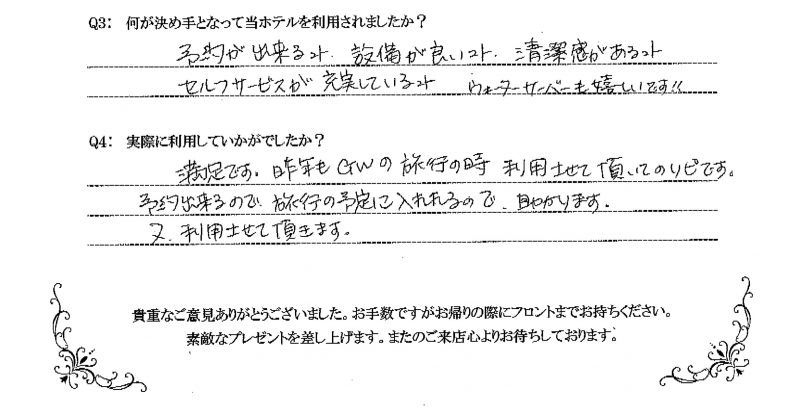 Q3: 何が決め手となって当ホテルを利用されましたか?
予約が出来るコト. 設備が良いコト. 清潔感があるコト
セルフサービスが充実しているコト ウォーターサーバーも嬉しいです!!
Q4: 実際に利用していかがでしたか?
満足です。昨年もGWの旅行の時 利用させて頂いてのリピです。
予約出来るので、旅行の予定に入れれるので、助かります。
又、利用させて頂きます。
貴重なご意見ありがとうございました。お手数ですがお帰りの際にフロントまでお持ちください。
素敵なプレゼントを差し上げます。またのご来店心よりお待ちしております。